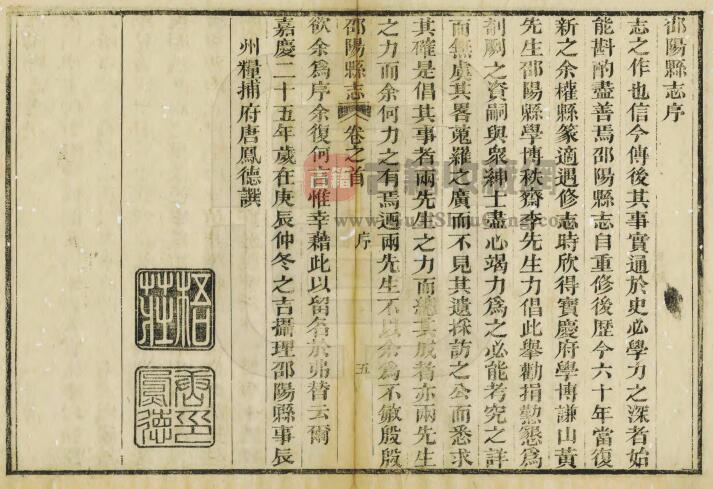 邵陽縣志序
志之作也信今傳後其事實通於史必學力之深者始
能斟酌盡善焉邵陽縣志自重修後歷今六十年當復
新之余權縣篆適遇修志時欣得寶慶府學博謙山黃
先生邵陽縣學博秩齋李先生力倡此舉勸捐懃懇為
剞劂之資嗣與衆紳士盡心竭力為之必能考究之詳
而無虞其畧蒐羅之廣而不見其遺採訪之公而悉求
其確是倡其事者兩先生之力而總其成者亦兩先生
之力而余何力之有焉迺兩先生不以余為不敏殷殷
邵陽縣志 卷之首 序 五
欲余為序余復何言惟幸藉此以留名於弗替云爾
嘉慶二十五年歲在庚辰仲冬之吉攝理邵陽縣事辰
州糧捕府唐鳳德譔
梧莊
唐印鳳德
古籍
www.GuJiShuCang.com